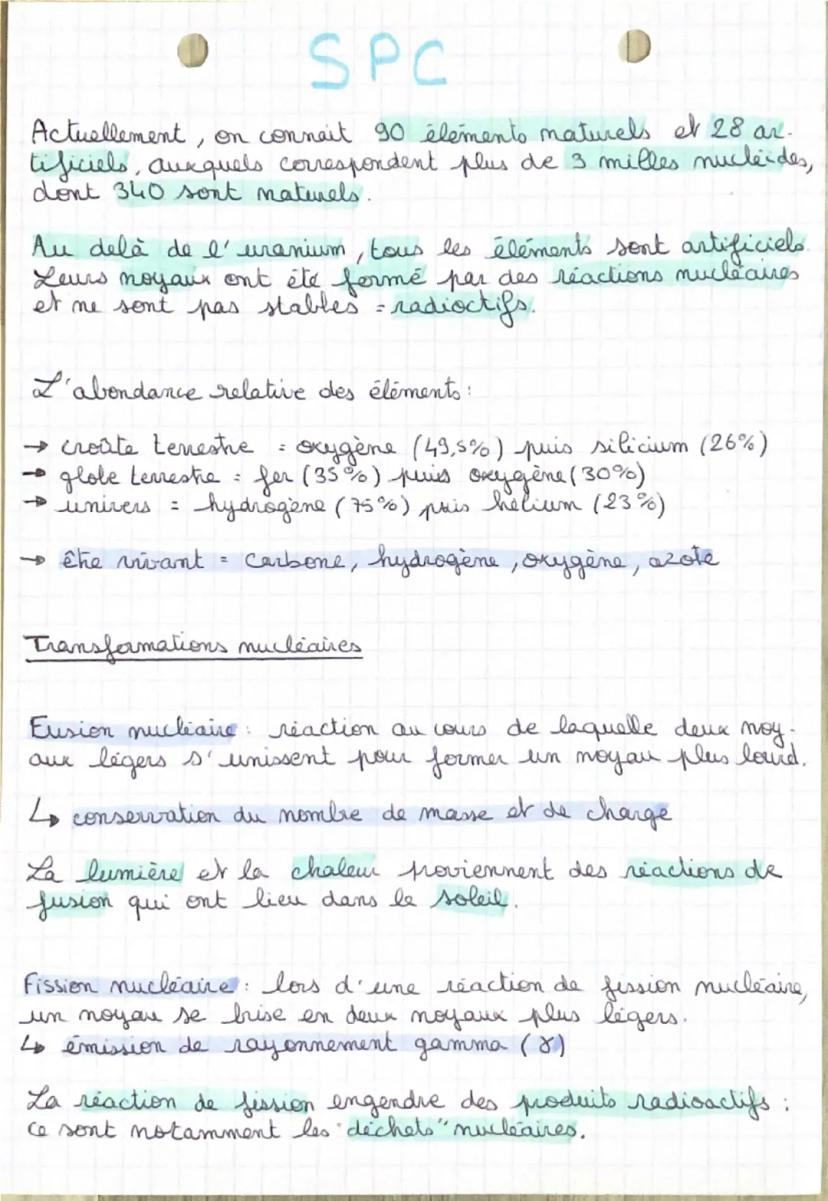 SPC
Actuellement, on connait 90 éléments naturels et 28 ar-
tificiels, auxquels correspondent plus de 3 milles nucléides,
dont 340 sont naturels.
Au delà de l'uranium, tous les éléments sont artificiels.
Leurs noyaux ont été formé par des réactions nucléaires
et ne sont pas stables = radioctifs.
L'abondance relative des éléments :
→ croûte terrestre = oxygène (49,5%) puis silicium (26%)
→ globe terrestre = fer (35%) puis oxygène (30%)
→ univers = hydrogène (75%) puis hélium (23%)
→ être vivant = carbone, hydrogène, oxygène, azote
Transformations nucléaires
Fusion nucléaire : réaction au cours de laquelle deux noy-
aux légers s'unissent pour former un noyau plus lourd.
↳ conservation du nombre de masse et de charge
La lumière et la chaleur proviennent des réactions de
fusion qui ont lieu dans le soleil.
Fission nucléaire : lors d'une réaction de fission nucléaire,
un noyau se brise en deux noyaux plus légers.
↳ émission de rayonnement gamma (γ)
La réaction de fission engendre des produits radioactifs :
ce sont notamment les "déchets" nucléaires.